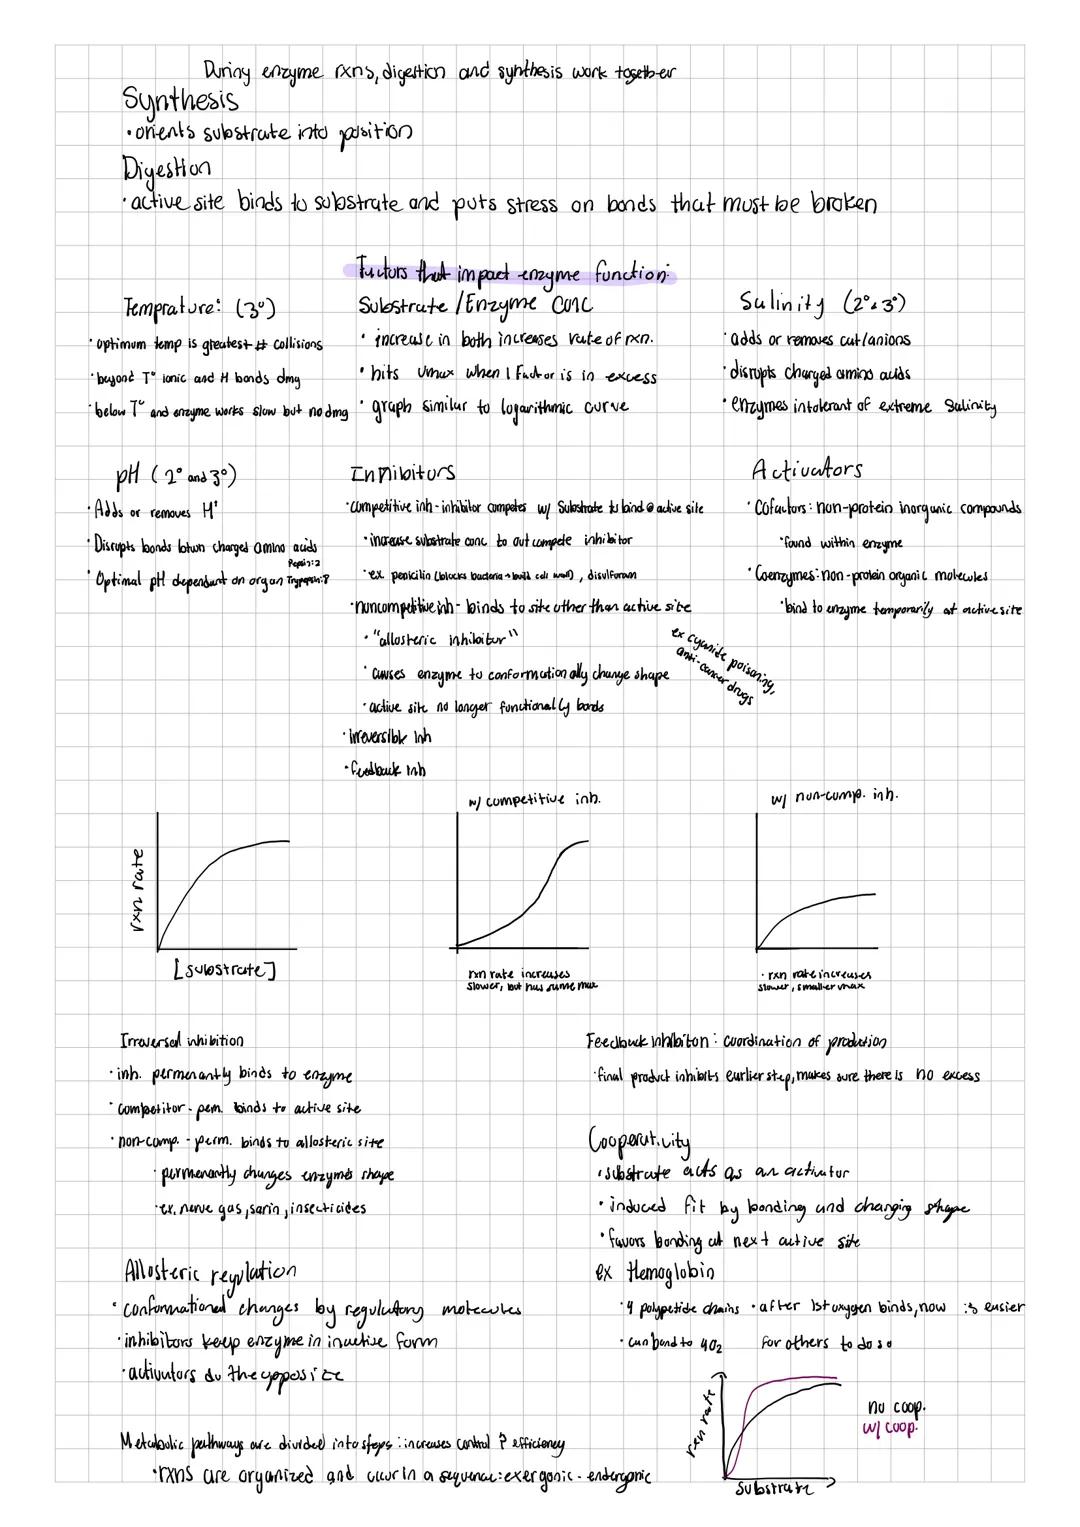 During enzyme rxns, digestion and synthesis work together
Synthesis
• orients substrate into position
Digestion
• active site binds to substrate and puts stress on bonds that must be broken
Factors that impact enzyme function:
Temprature: (3°)
• optimum temp is greatest # collisions
• beyond T° ionic and H bonds dmg
• below T° and enzyme works slow but no dmg
Substrate / Enzyme conc
• increase in both increases rate of rxn.
• hits vmax when 1 factor is in excess
• graph similar to logarithmic curve
Salinity (2° & 3°)
• adds or removes cat/anions
• disrupts charged amino acids
• enzymes intolerant of extreme salinity
pH (2° and 3°)
• Adds or removes H+
• Disrupts bonds btwn charged amino acids
• Optimal pH dependant on organ
Pepsin: 2
Inhibitors
• competitive inh - inhibitor competes w/ substrate to bind @ active site
• increase substrate conc to out compete inhibitor
• ex penicilin (blocks bacteria → build cell wall), disulfuram
• noncompetitive inh - binds to site other than active site
• "allosteric inhibitor"
• causes enzyme to conformationally change shape
• active site no longer functionally bonds
ex cyanide poisoning,
anti-cancer drugs
• irreversible inh
• feedback inh
Activators
• Cofactors: non-protein inorganic compounds
• found within enzyme
• Coenzymes: non-protein organic molecules
• bind to enzyme temporarily at active site
rxn rate
[substrate]
w/ competitive inh.
rxn rate increases
slower, but has same max
w/ non-comp. inh.
• rxn rate increases
slower, smaller vmax
Irreversal inhibition
• inh. permenantly binds to enzyme
• competitor - pem. binds to active site
• non-comp. - perm. binds to allosteric site
• permenantly changes enzymes shape
• ex. nerve gas, sarin, insecticides
Feedback inhibiton: coordination of production
• final product inhibits earlier step, makes sure there is no excess
Cooperativity
• substrate acts as an activator
• induced fit by bonding and changing shape
• favors bonding at next active site
ex Hemoglobin
• 4 polypetide chains
• can bond to 4O2
• after 1st oxygen binds, now is easier
for others to do so
Allosteric regulation
• conformational changes by regulatory molecules
• inhibitors keep enzyme in inactive form
• activators do the opposite
Metabolic pathways are divided into steps: increases control & efficiency
• rxns are organized and occur in a sequence: exergonic - endergonic
rxn rate
substrate
no coop.
w/ coop.